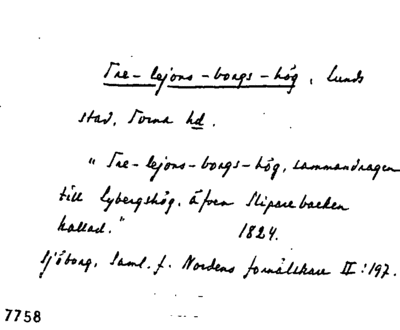 Tre-lejons-borgs-hög, Lunds
stad, Torna hd.
"Tre-lejons-borgs-hög, sammandragen
till Lybergshög, äfven Slipare backen
kallad." 1824.
Sjöborg, Saml. f. Nordens fornälskare II:197.
7758